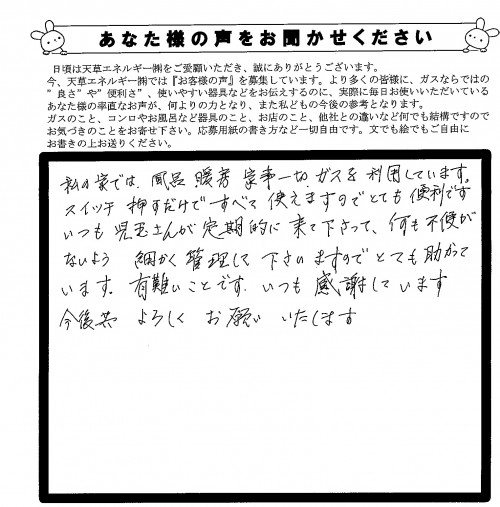 あなた様の声をお聞かせください
日頃は天草エネルギー㈱をご愛顧いただき、誠にありがとうございます。
今、天草エネルギー㈱では『お客様の声』を募集しています。より多くの皆様に、ガスならではの
”良さ”や”便利さ”、使いやすい器具などをお伝えするのに、実際に毎日お使いいただいている
あなた様の率直なお声が、何よりの力となり、また私どもの今後の参考となります。
ガスのこと、コンロやお風呂など器具のこと、お店のこと、他社との違いなど何でも結構ですので
お気づきのことをお寄せ下さい。応募用紙の書き方など一切自由です。文でも絵でもご自由に
お書きの上お送りください。
私の家では、風呂 暖房 家事一切 ガスを利用しています。
スイッチ 押すだけで すべて 使えますのでとても 便利です
いつも 児玉さんが 定期的に 来て下さって、何も不便が
ないよう 細かく 管理して 下さいますので とても 助かって
います。有難いことです。いつも 感謝しています
今後共 よろしく お願い いたします